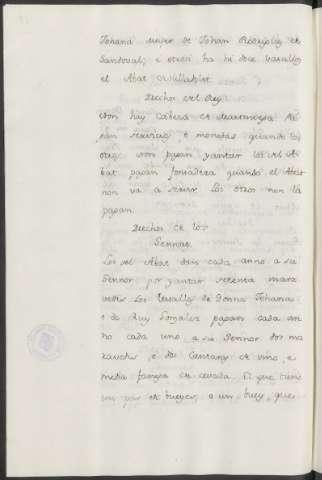 Johana muger de Johan Rodriguez de
Sandoval, e otrosi ha hi doce vasallos
el Abat de Valladolit
Derechos del Rey
Non hay cabeza de Martiniega. Al
Rey servicios, e monedas quando los
otros. Non pagan yantar. Los del A-
bat pagan fonsadera quando el Abat
non va a servir. Los otros non la
pagan.
Derechos de los
Sennores
Los del Abat dais cada anno a su
Sennor por yantar setenta mara
vedis. Los Vasallos de Donna Johana
e de Ruy Gonzalez pagan cada an
no cada uno a su Sennor dos ma
ravedis, e dos cantaras de vino, e
media fanega de cevada. El que tiene
un par de bueyes, o un buey, que